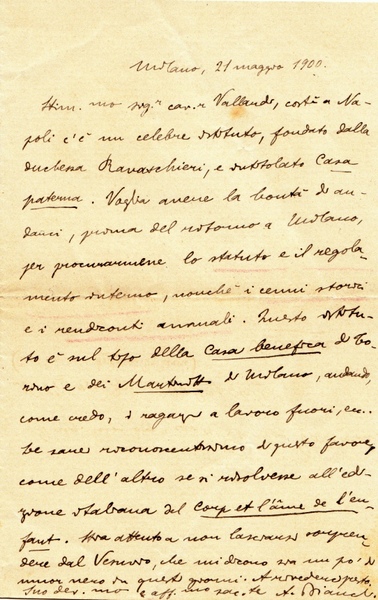 Milano, 21 maggio 1900.
Stim.mo sig.r cav.r Vallardi, costì a Na-
poli c'è un celebre istituto, fondato dalla
duchessa Ravaschieri, e intitolato Casa
paterna. Voglia avere la bontà di an-
darvi, prima del ritorno a Milano,
per procurarmene lo statuto e il regola-
mento interno, nonché i cenni storici
e i rendiconti annuali. Questo istitu-
to è sul tipo della Casa benefica di To-
rino e dei Martinitt di Milano, andando,
come credo, i ragazzi a lavoro fuori, ecc.
Le sarei riconoscentissimo di questo favore,
come dell'altro se si risolvesse all'edi-
zione italiana del Corps et l'âme de l'en-
fant. Stia attento a non lasciarsi sorpren-
dere dal Vesuvio, che mi dicono sia un po' di
umor nero in questi giorni. A rivederci presto.
Suo dev.mo e aff.mo